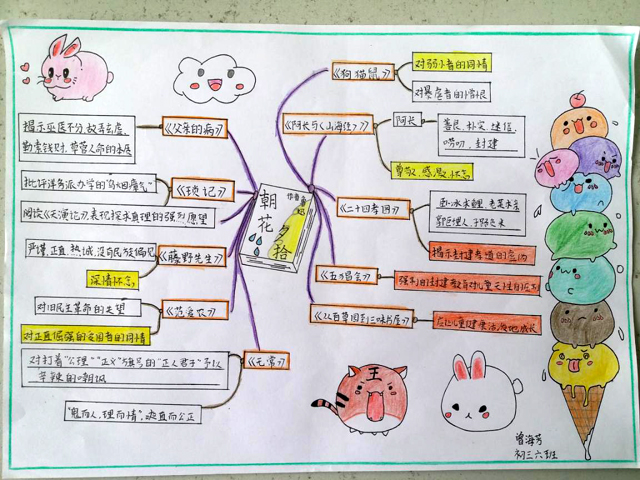 朝花夕拾
作者鲁迅
《狗猫鼠》
对弱小者的同情
对暴虐者的憎恨
《阿长与《山海经》》
阿长
善良、朴实、迷信、
唠叨、封建
尊敬、感激、怀念
《二十四孝图》
卧冰求鲤、老莱娱亲
郭巨埋儿、子路负米
揭示封建孝道的虚伪
《五猖会》
强制的封建教育对儿童天性的压制
《从百草园到三味书屋》
《父亲的病》
揭示巫医不分、故弄玄虚、
勒索钱财、草菅人命的本质
《琐记》
批评洋务派办学的"乌烟瘴气"
阅读《天演论》、表现探求真理的强烈愿望
《藤野先生》
严谨、正直、热诚、没有民族偏见
深情怀念
《范爱农》
对旧民主革命的失望
对正直倔强的爱国者的同情
《无常》
对打着"公理""正义"旗号的"正人君子"予以
辛辣的嘲讽
"鬼而人,理而情",爽直而公正
王
曾海芳
初三六班